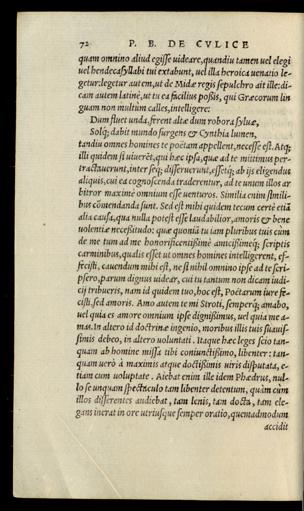 72 P. B. DE CVLICE
quam omnino aliud egisse uideare, quandiu tamen uel elegi
uel hendecasyllabi tui extabunt, uel illa heroica uenatio le-
getur: legetur autem, ut de Midæ regis sepulchro ait ille: di-
cam autem latinè, ut tu ea facilius possis, qui Græcorum lin
guam non multum calles, intelligere:
Dum fluet unda, ferent altæ dum robora syluæ,
Solq; dabit mundo surgens & Cynthia lumen,
tandiu omnes homines te poëtam appellent, necesse est. Atq;
illi quidem si uiuerét, qui hæc ipsa, quæ ad te mittimus per-
tractauerunt, inter seq; disseruerunt, essetq; ab ijs eligendus
aliquis, cui ea cognoscenda traderentur, ad te unum illos ar
bitror maximè omnium esse uenturos. Similia enim simili-
bus cōmendanda sunt. Sed est mihi quidem tecum certè etiā
alia causa, qua nulla potest esse laudabilior, amoris & bene
uolentiæ necessitudo: quæ quoniā tu iam pluribus tuis cùm
de me tum ad me honorificentissimè amicissimeq; scriptis
carminibus, qualis esset ut omnes homines intelligerent, ef-
fecisti, cauendum mihi est, ne si nihil omnino ipse ad te scri-
psero, parum dignus uidear, cui tu tantum non dicam iudi-
cij tribueris, nam id quidem tuo, hoc est, Poëtarum iure fe-
cisti, sed amoris. Amo autem te mi Stroti, semperq; amabo,
uel quia es amore omnium ipse dignissimus, uel quia me a-
mas. In altero id doctrinæ ingenio, moribus illis tuis suauis-
simis debeo, in altero uoluntati. Itaque hæc leges scio tan-
quam ab homine missa tibi coniunctissimo, libenter: tan-
quam uerò à maximis atque doctissimis uiris disputata, e-
tiam cum uoluptate. Aiebat enim ille idem Phædrus, nul-
lo se unquam spectaculo tam libenter detentum, quàm cùm
illos disserentes audiebat, tam lenis, tam docta, tam ele-
gans inerat in ore utriusque semper oratio, quemadmodum
accidit